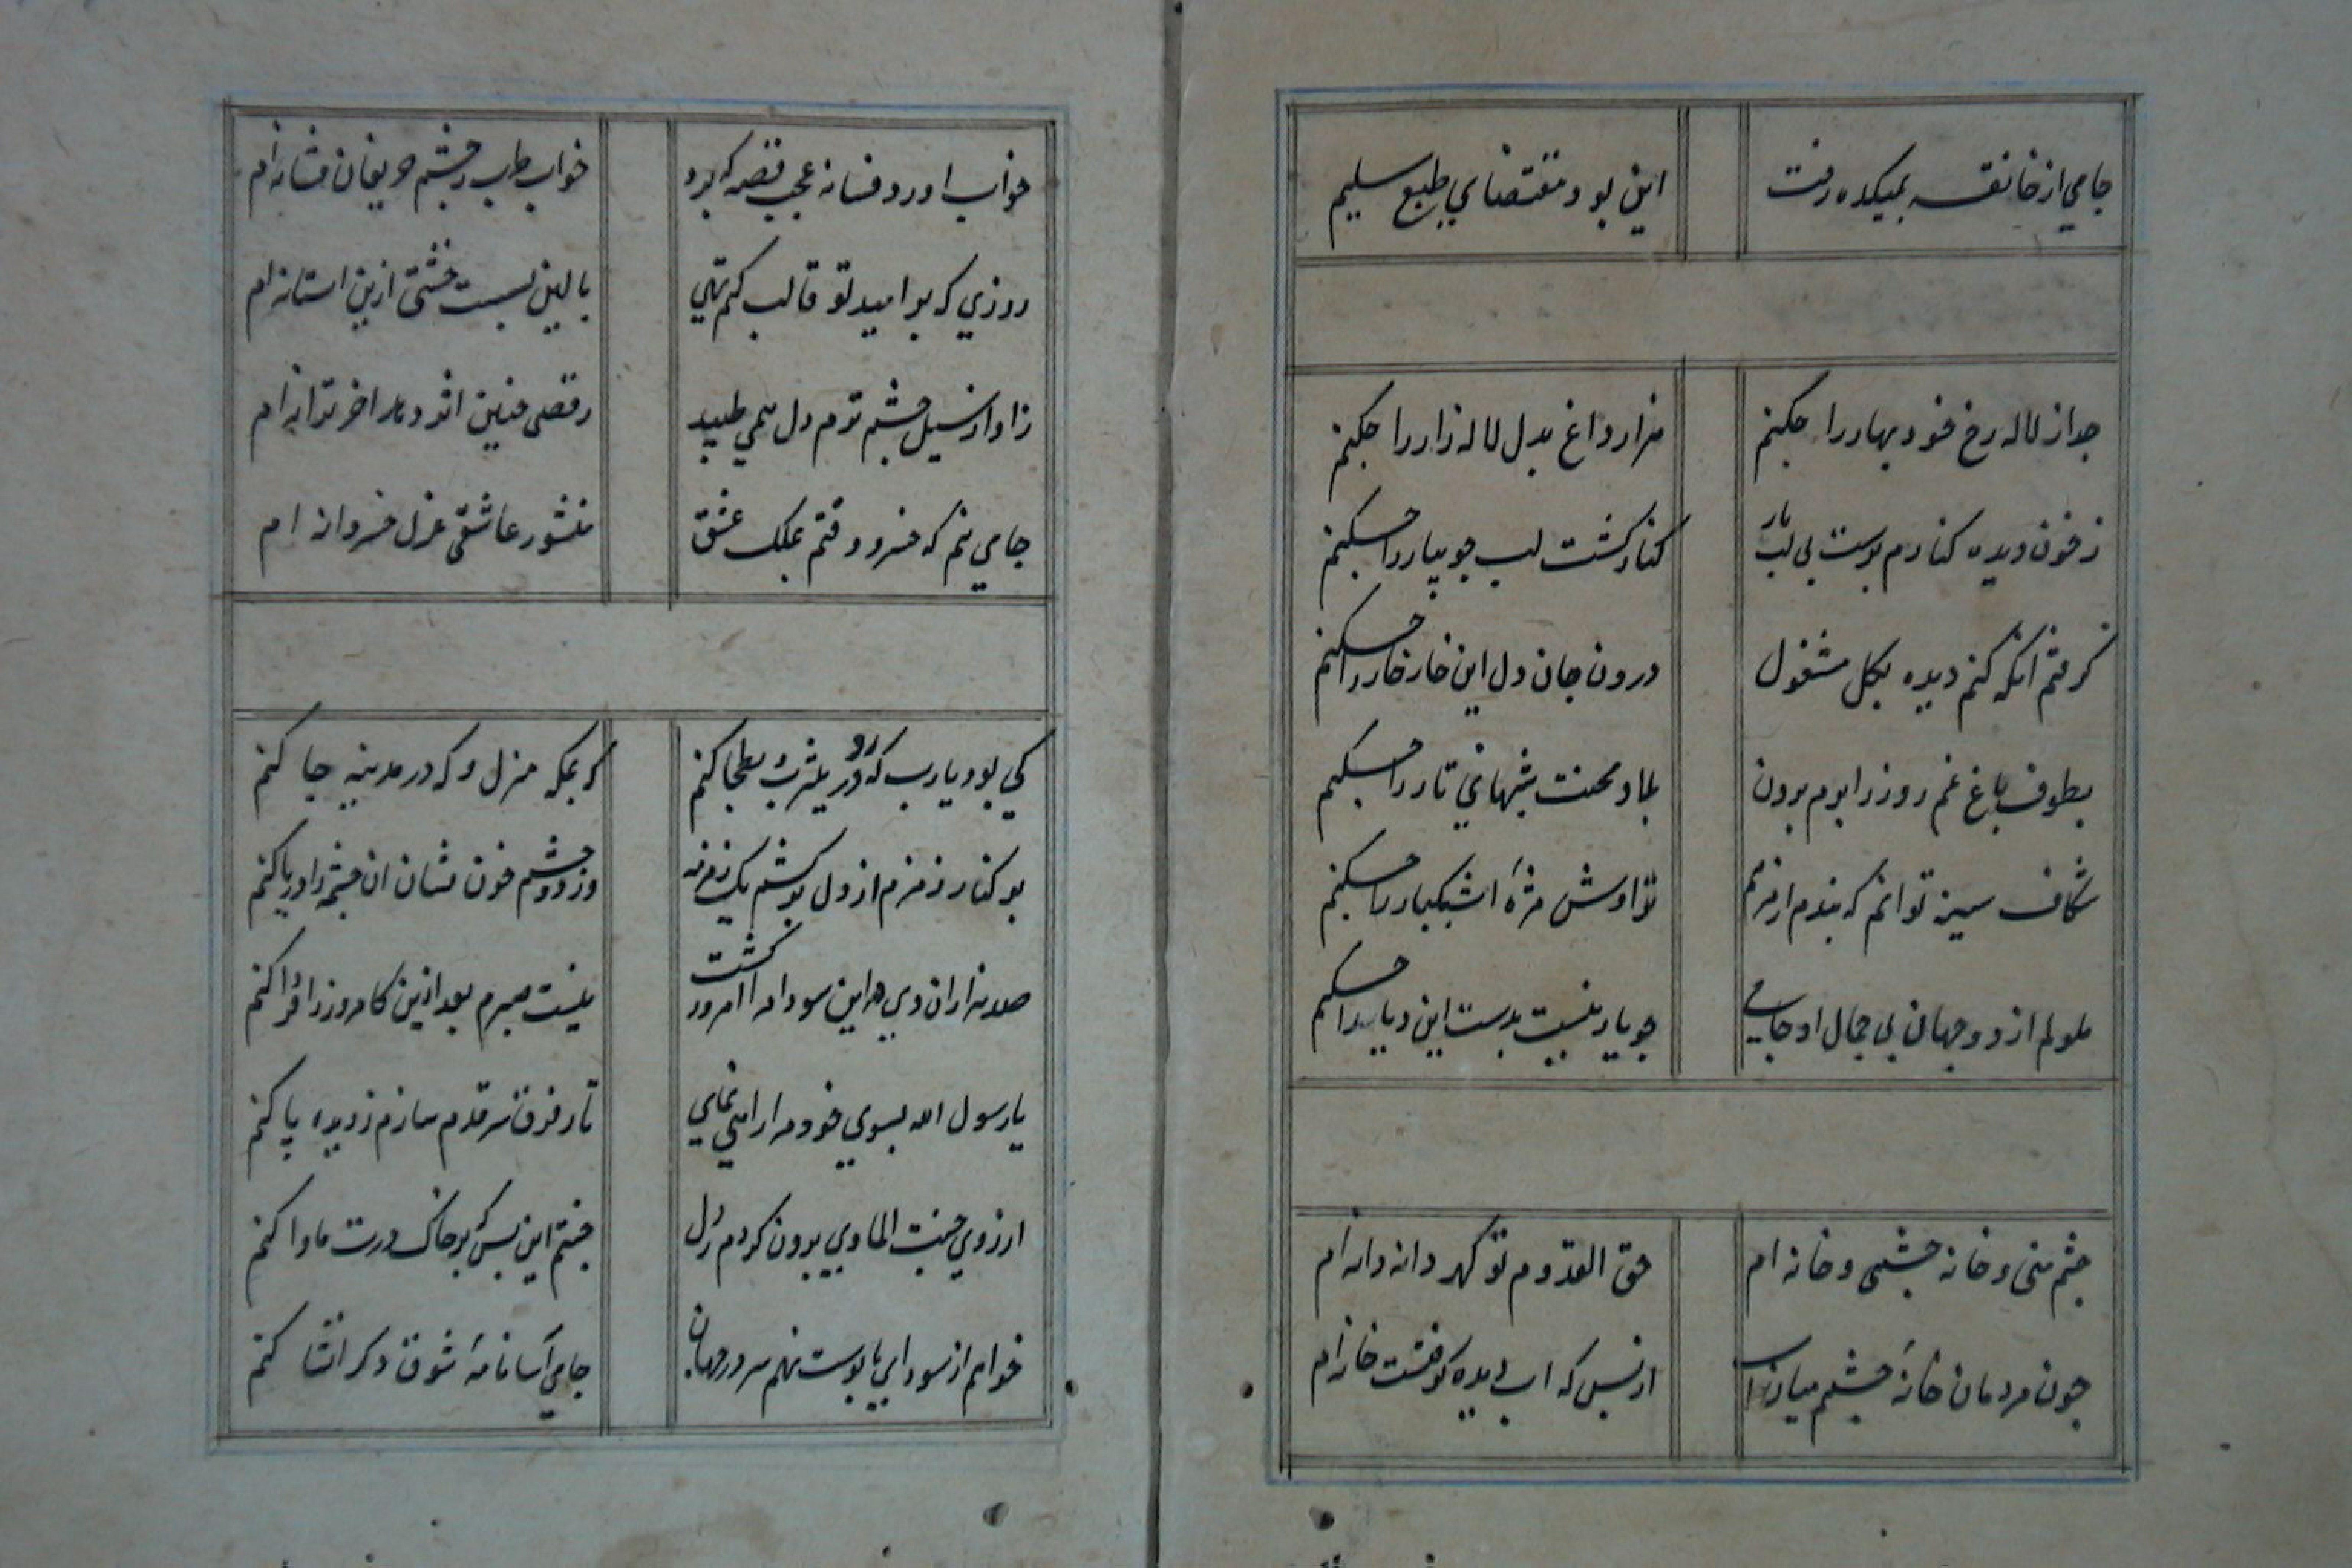 جامی از خانقه بمیکده رفت این بود مقتضای طبع سلیم
جدا ز لاله رخ خود بهار را چکنم هزار داغ بدل لاله زار را چکنم
ز خون دیده کنارم پرست بی لب یار کنار کشت لب جویبار را چکنم
گرفتم آنکه کنم دیده بگل مشغول درون جان و دل این خار خار را چکنم
بطوف باغ غم روز را برم بیرون بلا و محنت شبهای تار را چکنم
شکاف سینه توانم که بندم از مرهم تراوش مژهٔ اشکبار را چکنم
ملولم از دو جهان بی جمال او جامی چو یار نیست بدست این دیار را چکنم
چشم منی و خانه چشمی و خانه ام حق القدوم تو گهر دانه دانه ام
چون مردمان خانهٔ چشمم میان آب از بس که آب دیده گرفتست خانه ام
خواب آورد فسانه عجب قصه که برد خواب طرب ز چشم حریفان فسانه ام
روزی که بر امید تو قالب کنم تهی بالین بست خشتی ازین آستانه ام
ز آواز سیل چشم ترم دل همی طپید رقصی چنین اثر دهد آخر ترانه ام
جامی منم که خسرو وقتم بملک عشق منشور عاشقی غزل خسروانه ام
کی بود یارب که رو در یثرب و بطحا کنم گه بمکه منزل و گه در مدینه جا کنم
بر کنار زمزم از دل برکشم یک زمزمه وز دو چشم خون فشان آن چشمه را دریا کنم
صد هزاران دی درین سودا مرا امروز گشت نیست صبرم بعد ازین کامروز را فردا کنم
یا رسول الله بسوی خود مرا راهی نمای تا ز فرق سر قدم سازم ز دیده پا کنم
آرزوی جنت الماوی برون کردم ز دل جنتم این بس که بر خاک درت ماوا کنم
خواهم از سودای پابوست نهم سر در جهان جامی آسا نامهٔ شوق دگر انشا کنم